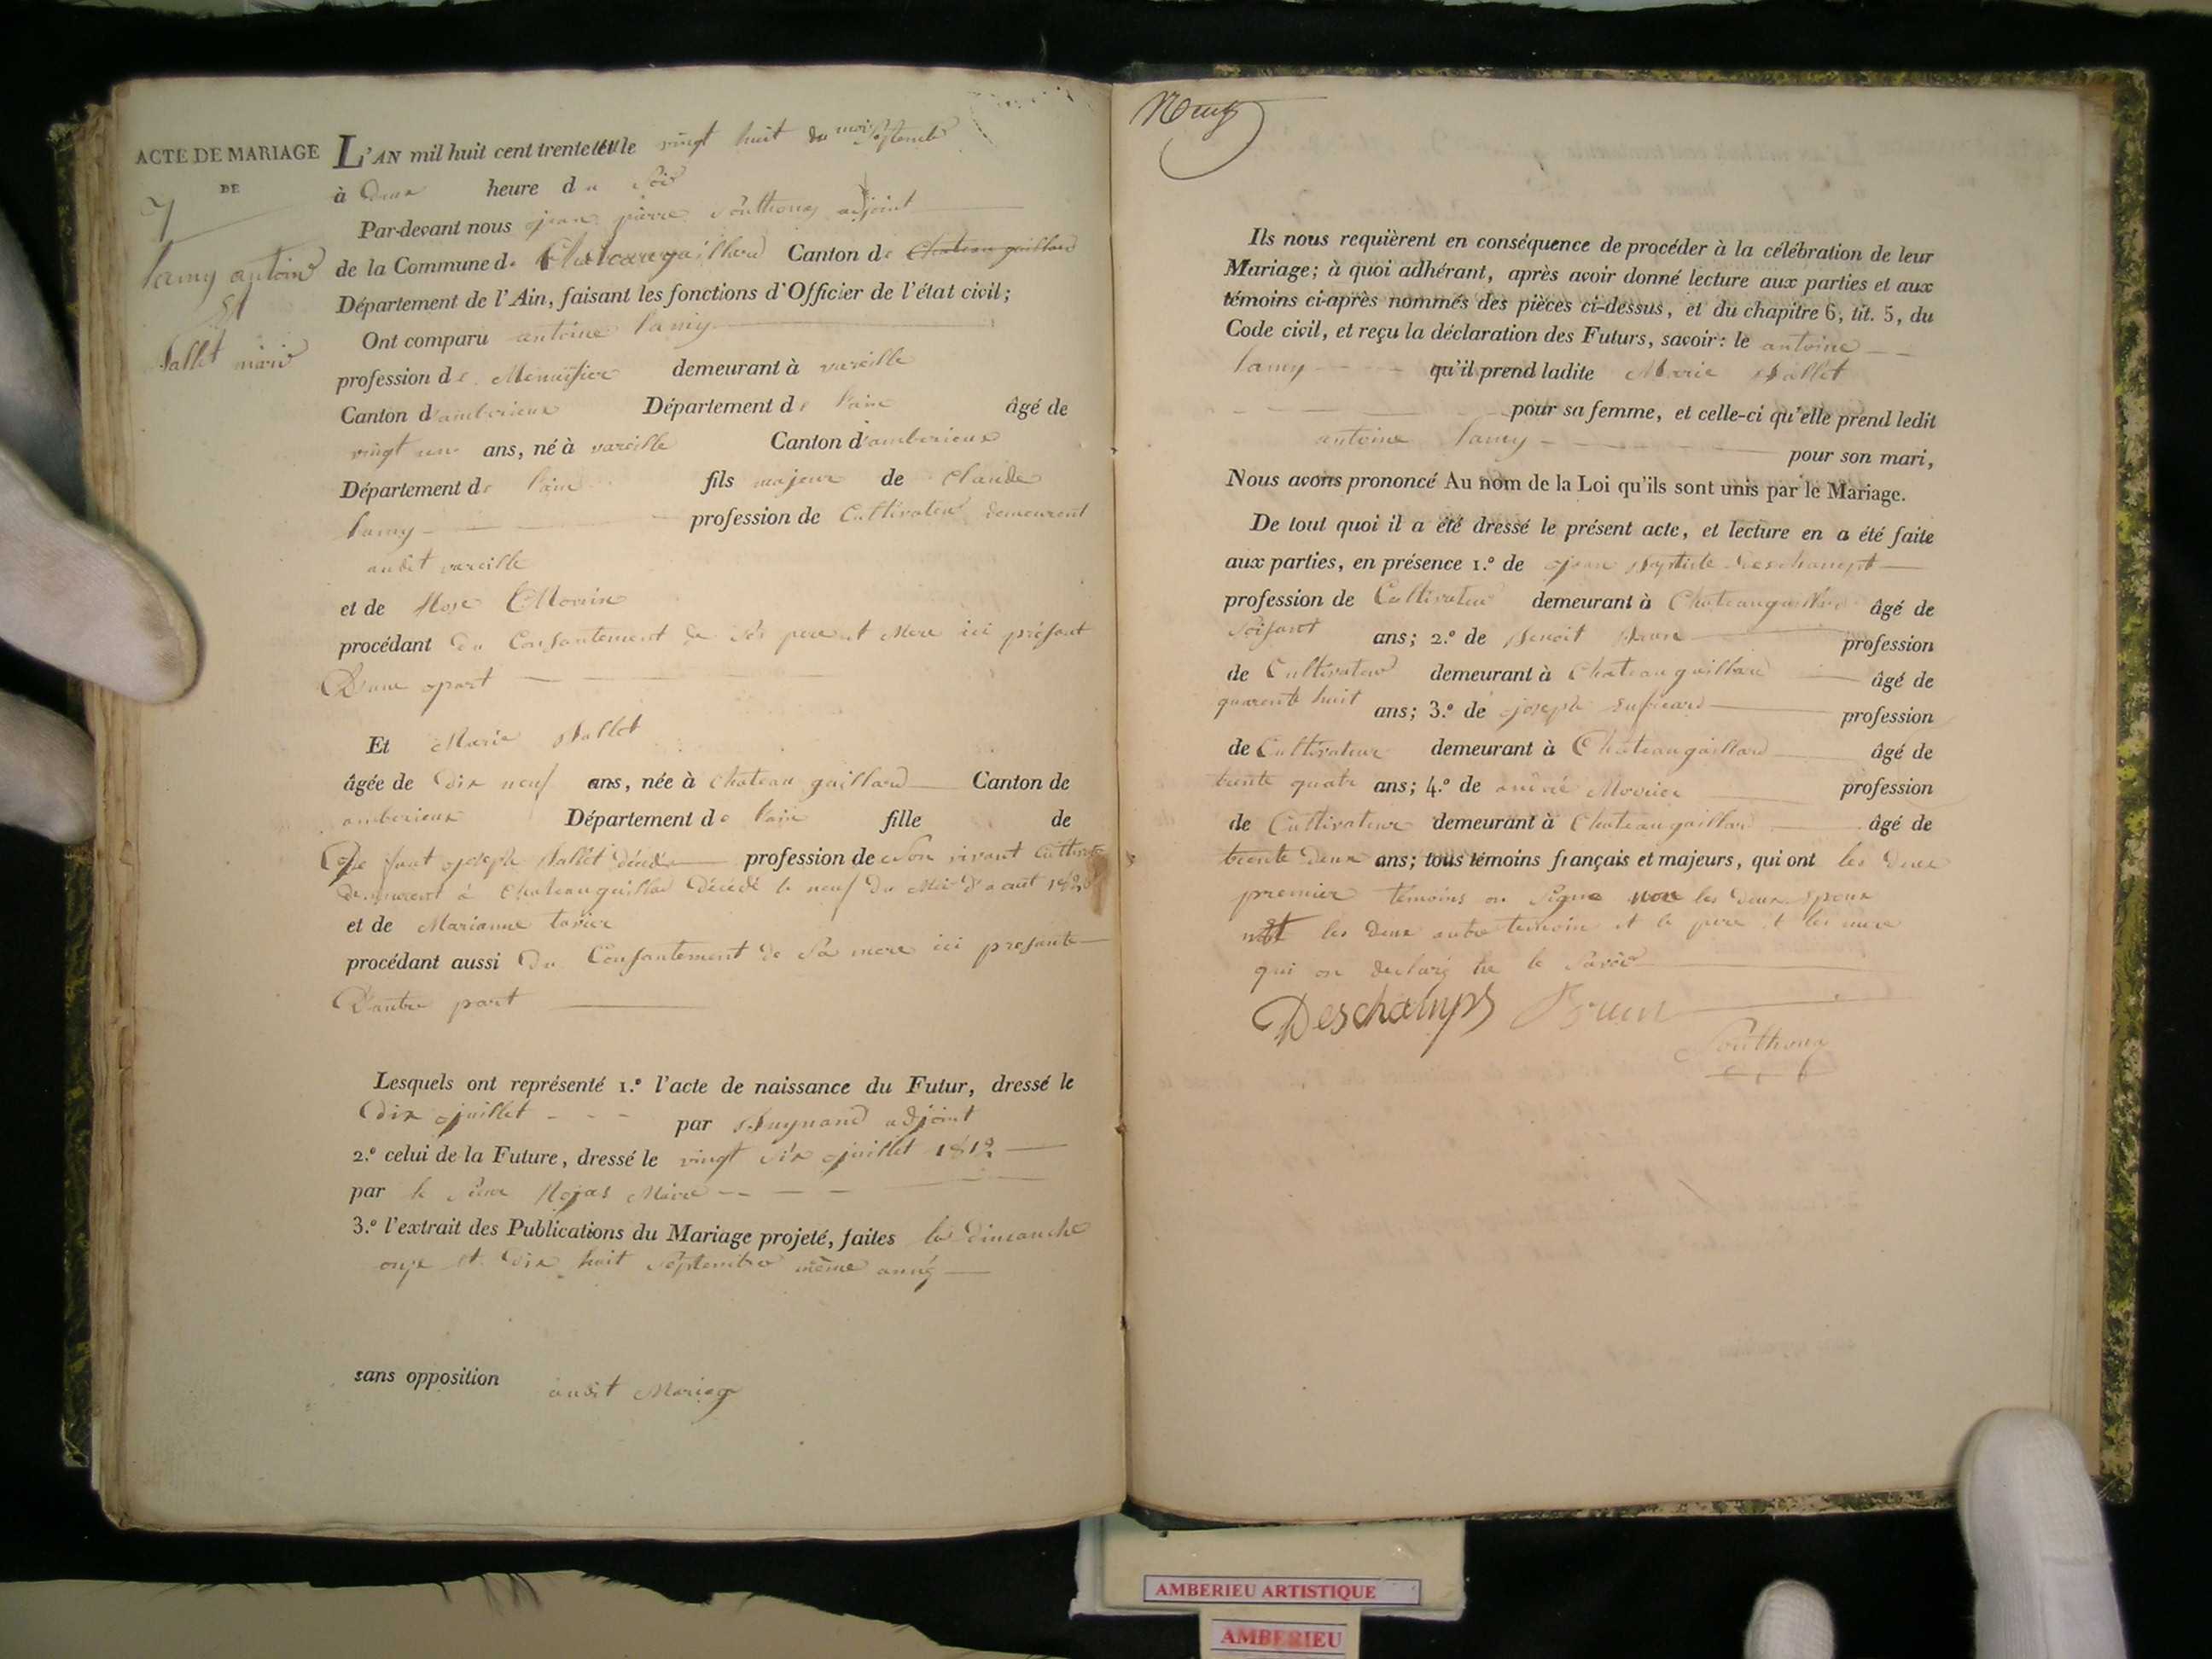 ACTE DE MARIAGE
DE
7
Lamy antoine
et
Ballet marie
L'AN mil huit cent trente et un le vingt huit du mois septembre
à Deux heure du soir
Par-devant nous jean pierre Southonay adjoint
de la Commune de Chateaugaillard Canton de Chateaugaillard
Département de l'Ain, faisant les fonctions d'Officier de l'état civil;
Ont comparu antoine Lamy
profession de Menuisier demeurant à vareille
Canton d'amberieux Département de l'ain âgé de
vingt un ans, né à vareille Canton d'amberieux
Département de l'ain fils majeur de Claude
Lamy profession de Cultivateur demeurent
audit vareille
et de Rose Morin
procédant du Consantement de Ses pere et Mere ici présant
D'une part
Et Marie Ballet
âgée de Dix neuf ans, née à Chateau gaillard Canton de
amberieux Département de l'ain fille de
De faut joseph Ballet décédé profession de Son vivant Cultivateur
Demeurent à Chateaugaillard Décédé le neuf du Moi d'aout
et de Marianne tavier
procédant aussi Du Consantement de Sa mere ici presante
D'autre part
Lesquels ont représenté 1.º l'acte de naissance du Futur, dressé le
Dix juillet par Buynand adjoint
2.º celui de la Future, dressé le vingt six juillet 1812
par le Sieur Rojas Maire
3.º l'extrait des Publications du Mariage projeté, faites les Dimanche
onze et Dix huit Septembre même année
sans opposition audit Mariage
Neuf
Ils nous requièrent en conséquence de procéder à la célébration de leur
Mariage; à quoi adhérant, après avoir donné lecture aux parties et aux
témoins ci-après nommés des pièces ci-dessus, et du chapitre 6, tit. 5, du
Code civil, et reçu la déclaration des Futurs, savoir: le antoine
Lamy qu'il prend ladite Marie Ballet
pour sa femme, et celle-ci qu'elle prend ledit
antoine Lamy pour son mari,
Nous avons prononcé Au nom de la Loi qu'ils sont unis par le Mariage.
De tout quoi il a été dressé le présent acte, et lecture en a été faite
aux parties, en présence 1.º de jean Baptiste Deschampt
profession de Cultivateur demeurant à Chateaugaillard âgé de
Soisant ans; 2.º de Benoit Brun profession
de Cultivateur demeurant à Chateaugaillard âgé de
quarente huit ans; 3.º de joseph profession
de Cultivateur demeurant à Chateaugaillard âgé de
trente quatr ans; 4.º de andré Movrier profession
de Cultivateur demeurant à Chateaugaillard âgé de
trente Deux ans; tous témoins français et majeurs, qui ont les Deux
premier témoins on Signe non les Deux Epoux
les Deux autre temoin et le pere et les mere
qui on declaré ne le Savoir
Deschamps Brun
Southonay
AMBERIEU ARTISTIQUE
AMBERIEU